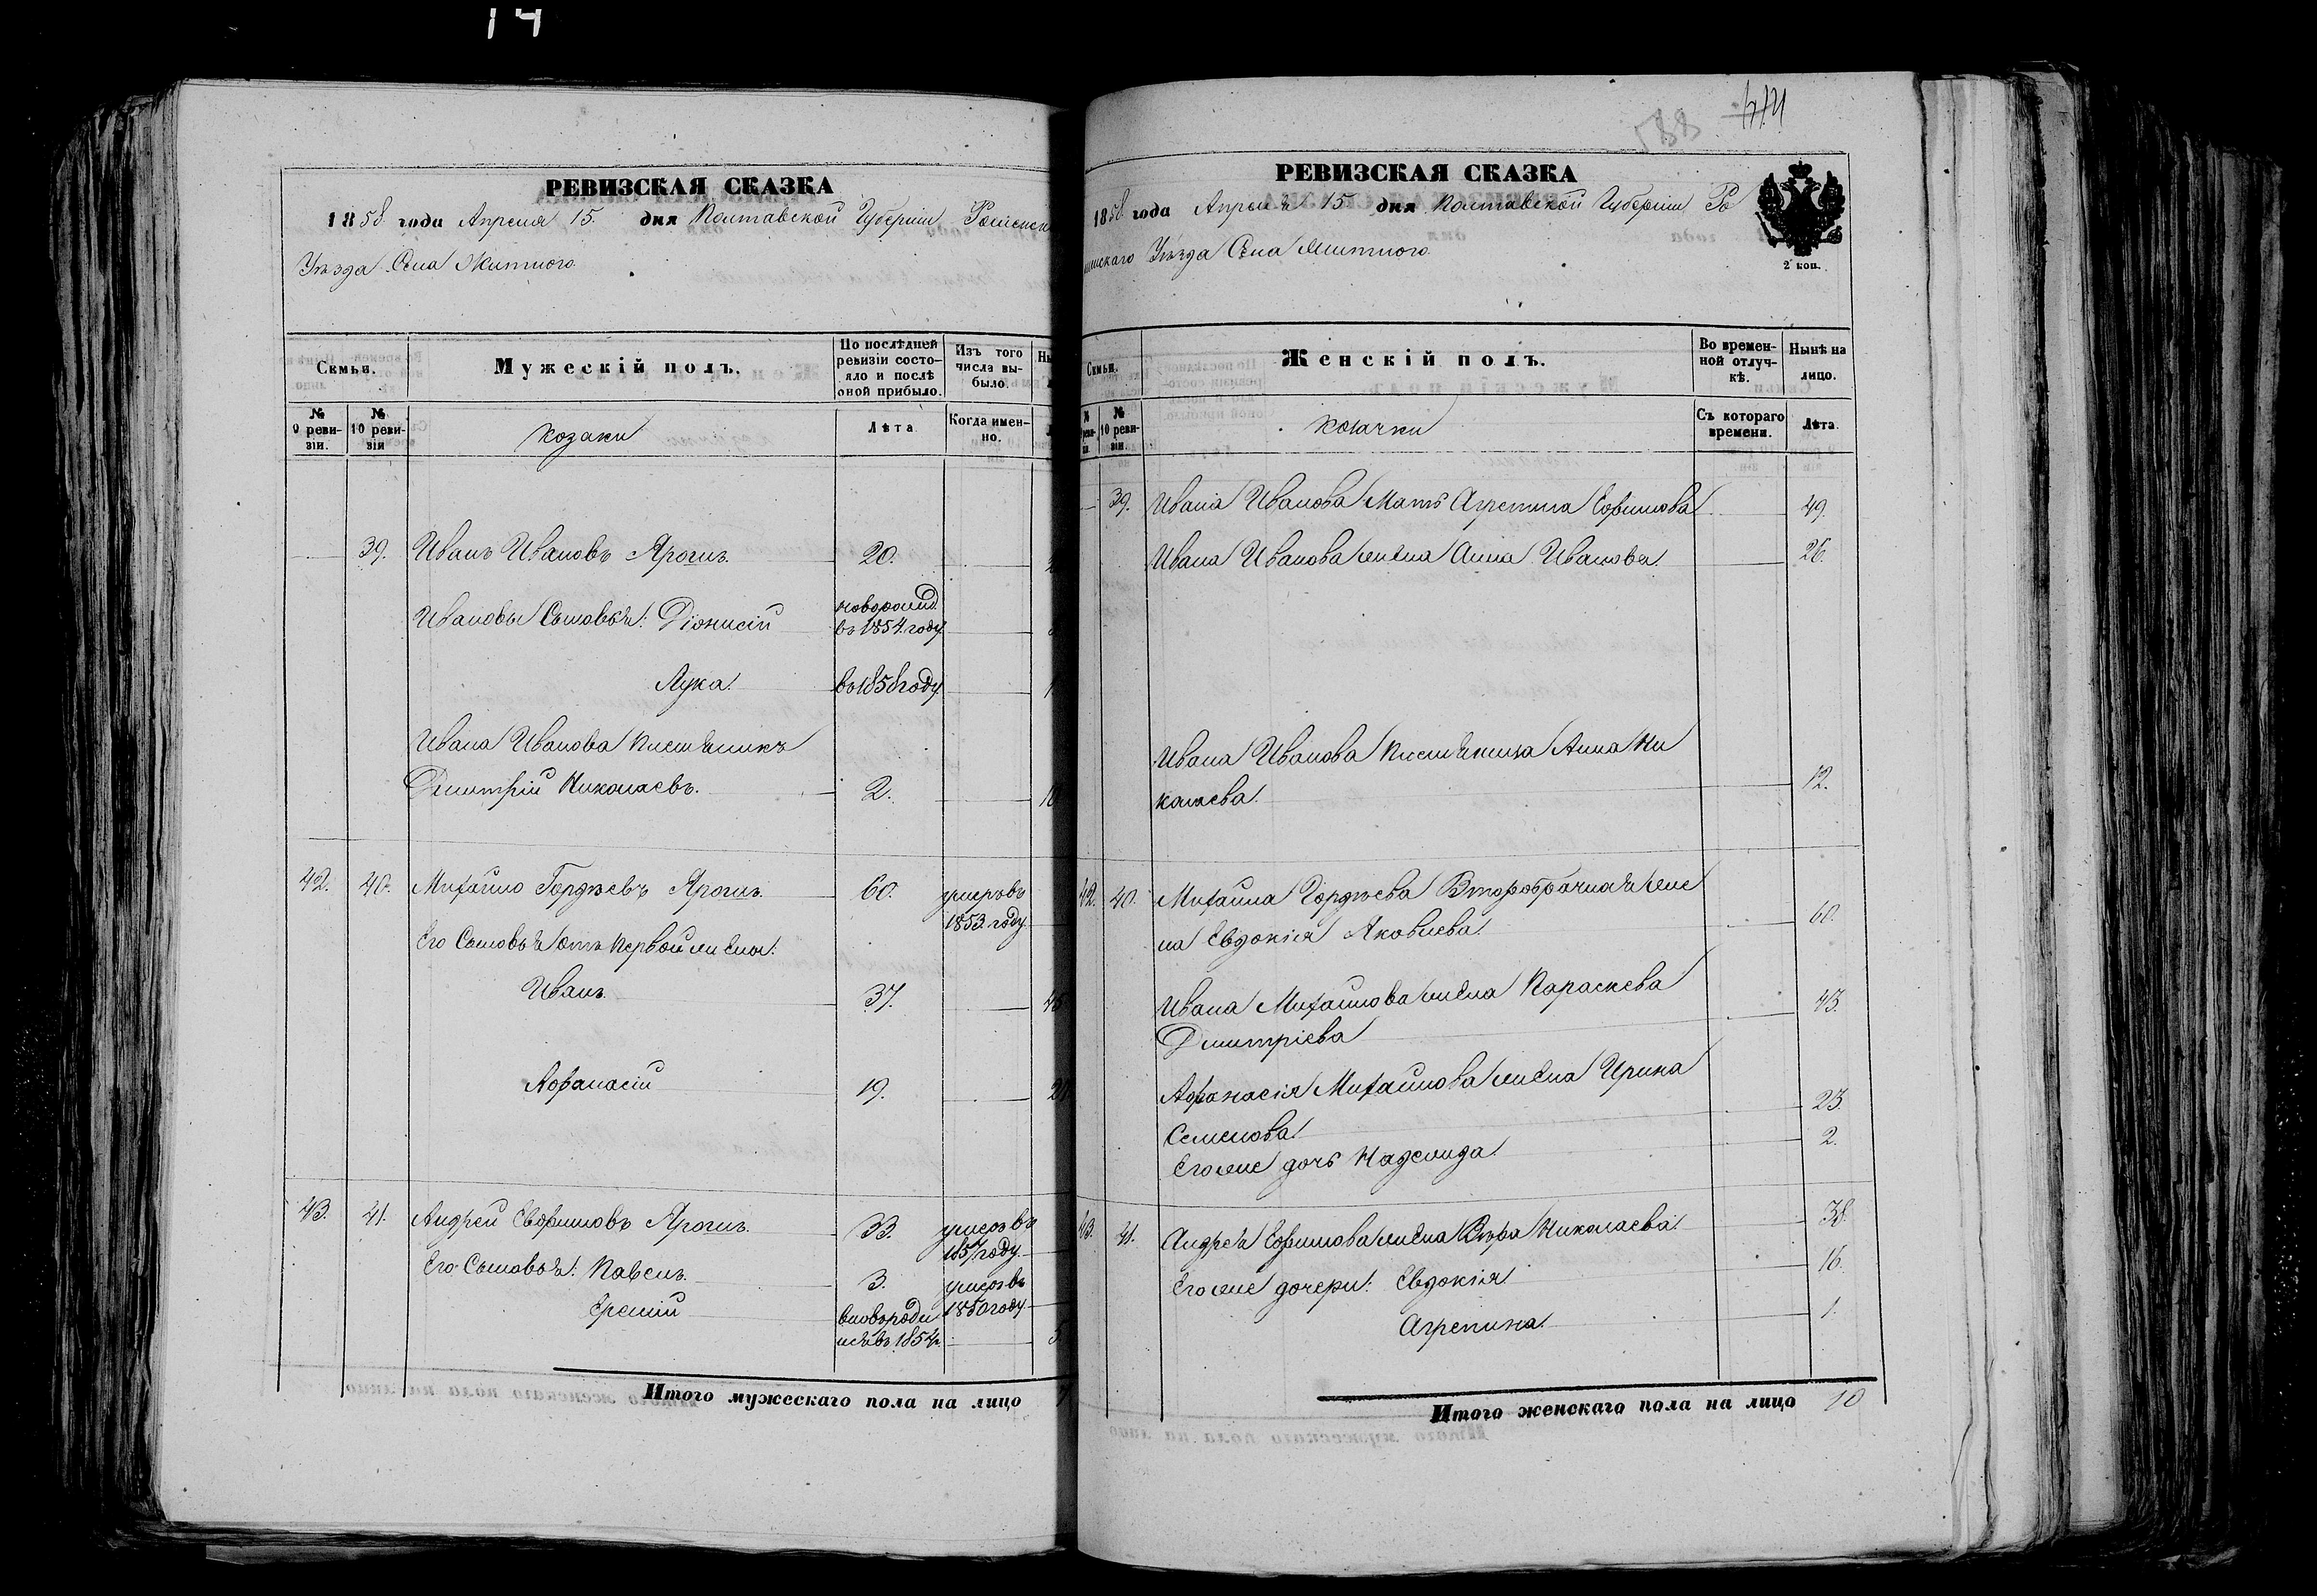 14
РЕВИЗСКАЯ СКАЗКА
1858 года Апреля 15. дня Полтавской Губерніи Роменск
Уѣзда Села Житного
Семьи.
Мужескій полъ.
По послѣдней ревизіи состояло и послѣ оной прибыло.
Изъ того числа выбыло.
№ 9 ревизіи.
№ 10 ревизіи
козаки
Лѣта
Когда именно.
39. Иванъ Ивановъ Ярошъ. 20.
Ивановы Сыновья: Діонисій новорожд. въ 1854 году
Лука. въ 1858 году
Ивана Иванова племянникъ
Дмитрій Николаевъ. 2. 10
42. 40. Михайло Гордѣевъ Ярошъ. 60. умеръ въ 1853 году
Его Сыновья отъ первой жены:
Иванъ. 37.
Афанасій 19.
43. 41. Андрей Евфимовъ Ярошъ. 33. умеръ въ 1857 году.
Его Сыновья: Павелъ. 3. умеръ въ 1850 году
Еремій вновь роди лся въ 1854 г. 5
Итого мужескаго пола на лицо
588
РЕВИЗСКАЯ СКАЗКА
1858 года Апреля 15 дня Полтавской Губерніи Ро
менскаго Уѣзда Села Житного
2 коп.
Семьи.
Женскій полъ.
Во временной отлучкѣ.
Нынѣ на лицо.
№ 10 ревизіи.
козачки
Съ котораго времени.
Лѣта.
39. Ивана Иванова Мать Агрепина Ефимова 49.
Ивана Иванова жена Анна Иванова 26.
Ивана Иванова племяница Анна Ни
колаева 12.
42. 40. Михайла Гордѣева Второбрачная же
на Евдокія Яковлева 60.
Ивана Михайлова жена Параскева 43.
Дмитріева
Афанасія Михайлова жена Ирина
Семенова 23.
Его же дочь Надежда 2.
43. 41. Андрея Ефимова жена Вѣра Николаева 38.
Его же дочери: Евдокія 16.
Агрепина 1.
Итого женскаго пола на лицо 10